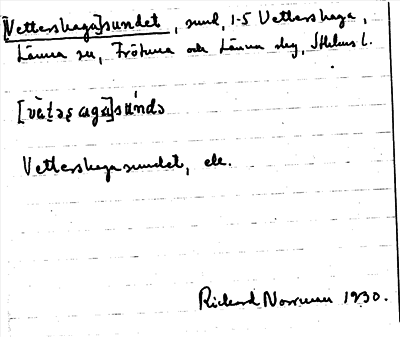 [Vettershaga]sundet, sund, 1-5 Vettershaga,
Länna sn, Frötuna och Länna slg, Sthlms l.
[vä̀təṣ aga]súndə
Vettershagasundet, ek.
Rickard Norrman 1930.